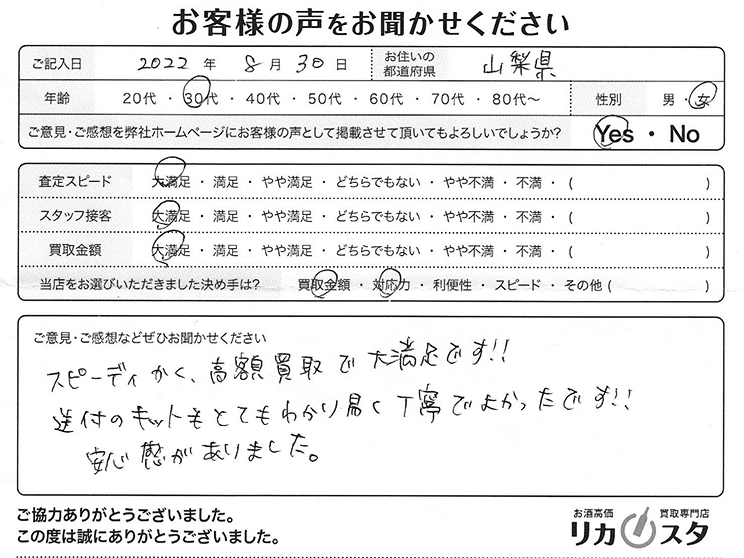 お客様の声をお聞かせください
ご記入日 2022 年 8 月 30 日 お住いの都道府県 山梨県
年齢 20代 ・ 30代 ・ 40代 ・ 50代 ・ 60代 ・ 70代 ・ 80代〜 性別 男 ・ 女
ご意見・ご感想を弊社ホームページにお客様の声として掲載させて頂いてもよろしいでしょうか? Yes ・ No
査定スピード 大満足 ・ 満足 ・ やや満足 ・ どちらでもない ・ やや不満 ・ 不満 ・ ( )
スタッフ接客 大満足 ・ 満足 ・ やや満足 ・ どちらでもない ・ やや不満 ・ 不満 ・ ( )
買取金額 大満足 ・ 満足 ・ やや満足 ・ どちらでもない ・ やや不満 ・ 不満 ・ ( )
当店をお選びいただきました決め手は? 買取金額 ・ 対応力 ・ 利便性 ・ スピード ・ その他 ( )
ご意見・ご感想などぜひお聞かせください
スピーディかく、高額買取で大満足です!!
送付のキットもとてもわかり易く丁寧でよかったです!!
安心感がありました。
ご協力ありがとうございました。
この度は誠にありがとうございました。
お酒高価 買取専門店
リカスタ